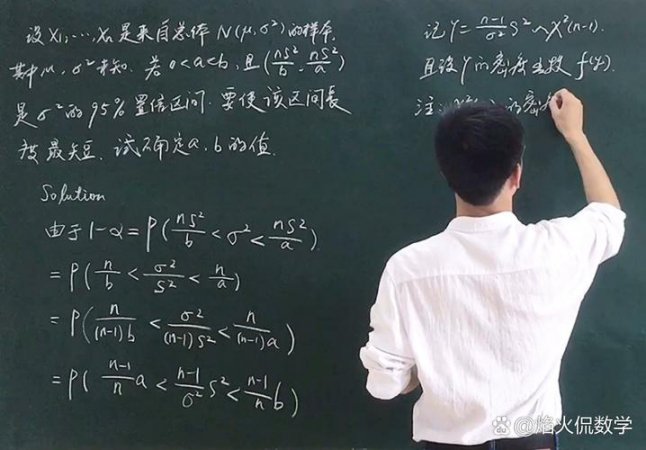 设X₁,…,Xₙ是来自总体 N(μ,σ²)的样本,
其中μ,σ²未知. 若 0<a<b, 且(nS²/b, nS²/a)
是σ²的95%置信区间. 要使该区间长
度最短. 试确定a,b的值.
Solution
由于 1-α=P(nS²/b < σ² < nS²/a)
=P(n/b < σ²/S² < n/a)
=P(n/(n-1)b < σ²/(n-1)S² < n/(n-1)a)
=P((n-1)/n a < (n-1)/σ² S² < (n-1)/n b)
记 Y=(n-1)/σ² S² ~ χ²(n-1).
且设 Y 的密度函数 f(y).
注
的密
@烽火侃数学